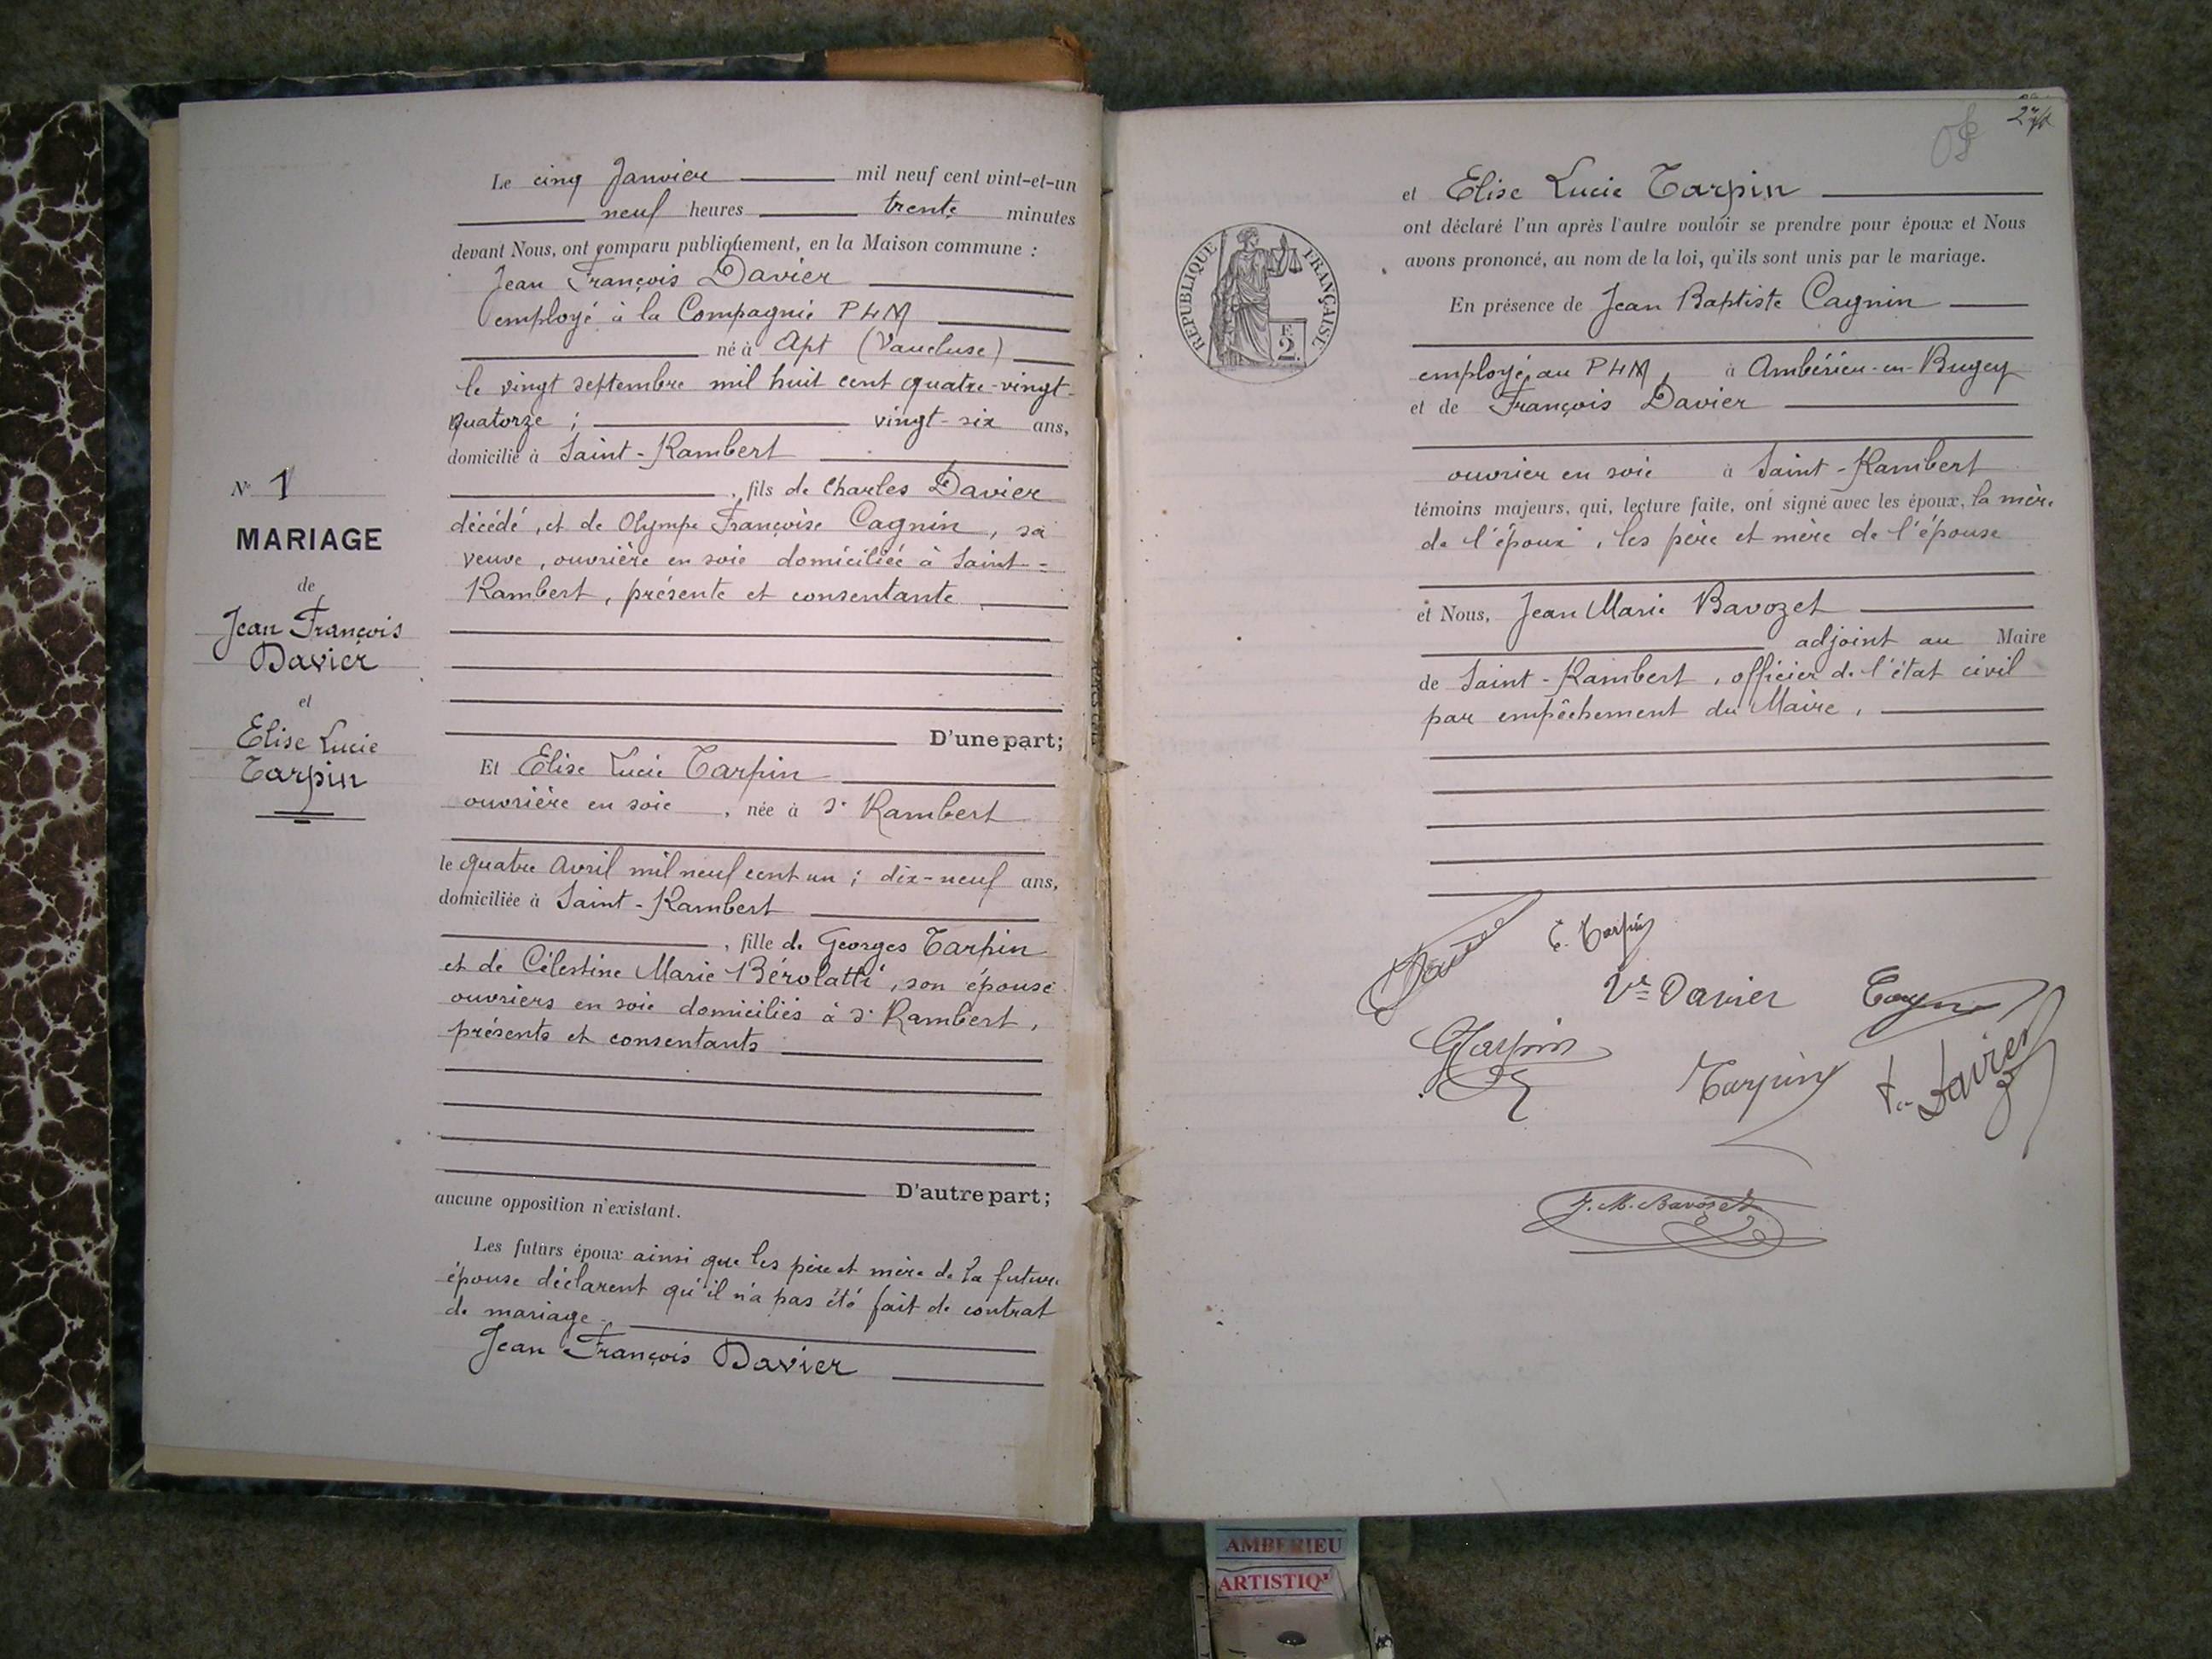 N° 1
MARIAGE
de
Jean François
Davier
et
Elise Lucie
Tarpin
Le cinq Janvier mil neuf cent vint-et-un
neuf heures trente minutes
devant Nous, ont comparu publiquement, en la Maison commune :
Jean François Davier
employé à la Compagnie PLM
né à Apt (Vaucluse)
le vingt septembre mil huit cent quatre-vingt-
quatorze ; vingt-six ans,
domicilié à Saint-Rambert
, fils de Charles Davier
décédé, et de Olympe Françoise Cagnin, sa
veuve, ouvrière en soie domiciliée à Saint-
Rambert, présente et consentante,
D'une part;
Et Elise Lucie Tarpin
ouvrière en soie, née à St Rambert
le quatre Avril mil neuf cent un ; dix-neuf ans,
domiciliée à Saint-Rambert
, fille de Georges Tarpin
et de Célestine Marie Bérolatti, son épouse
ouvriers en soie domiciliés à St Rambert,
présents et consentants
D'autre part;
aucune opposition n'existant.
Les futurs époux ainsi que les père et mère de la future
épouse déclarent qu'il n'a pas été fait de contrat
de mariage.
Jean François Davier
et Elise Lucie Tarpin
ont déclaré l'un après l'autre vouloir se prendre pour époux et Nous
avons prononcé, au nom de la loi, qu'ils sont unis par le mariage.
RÉPUBLIQUE FRANÇAISE
2
F.
En présence de Jean Baptiste Cagnin
employé au PLM, à Ambérieu-en-Bugey
et de François Davier
ouvrier en soie à Saint-Rambert
témoins majeurs, qui, lecture faite, ont signé avec les époux, la mère
de l'époux, les père et mère de l'épouse
et Nous, Jean Marie Bavozet
adjoint au Maire
de Saint-Rambert, officier de l'état civil
par empêchement du Maire,
Davier
E. Tarpin
Vve Davier
Cagnin
GTarpin
Tarpin
F. Davier
J. M. Bavozet
AMBERIEU
ARTISTIQ